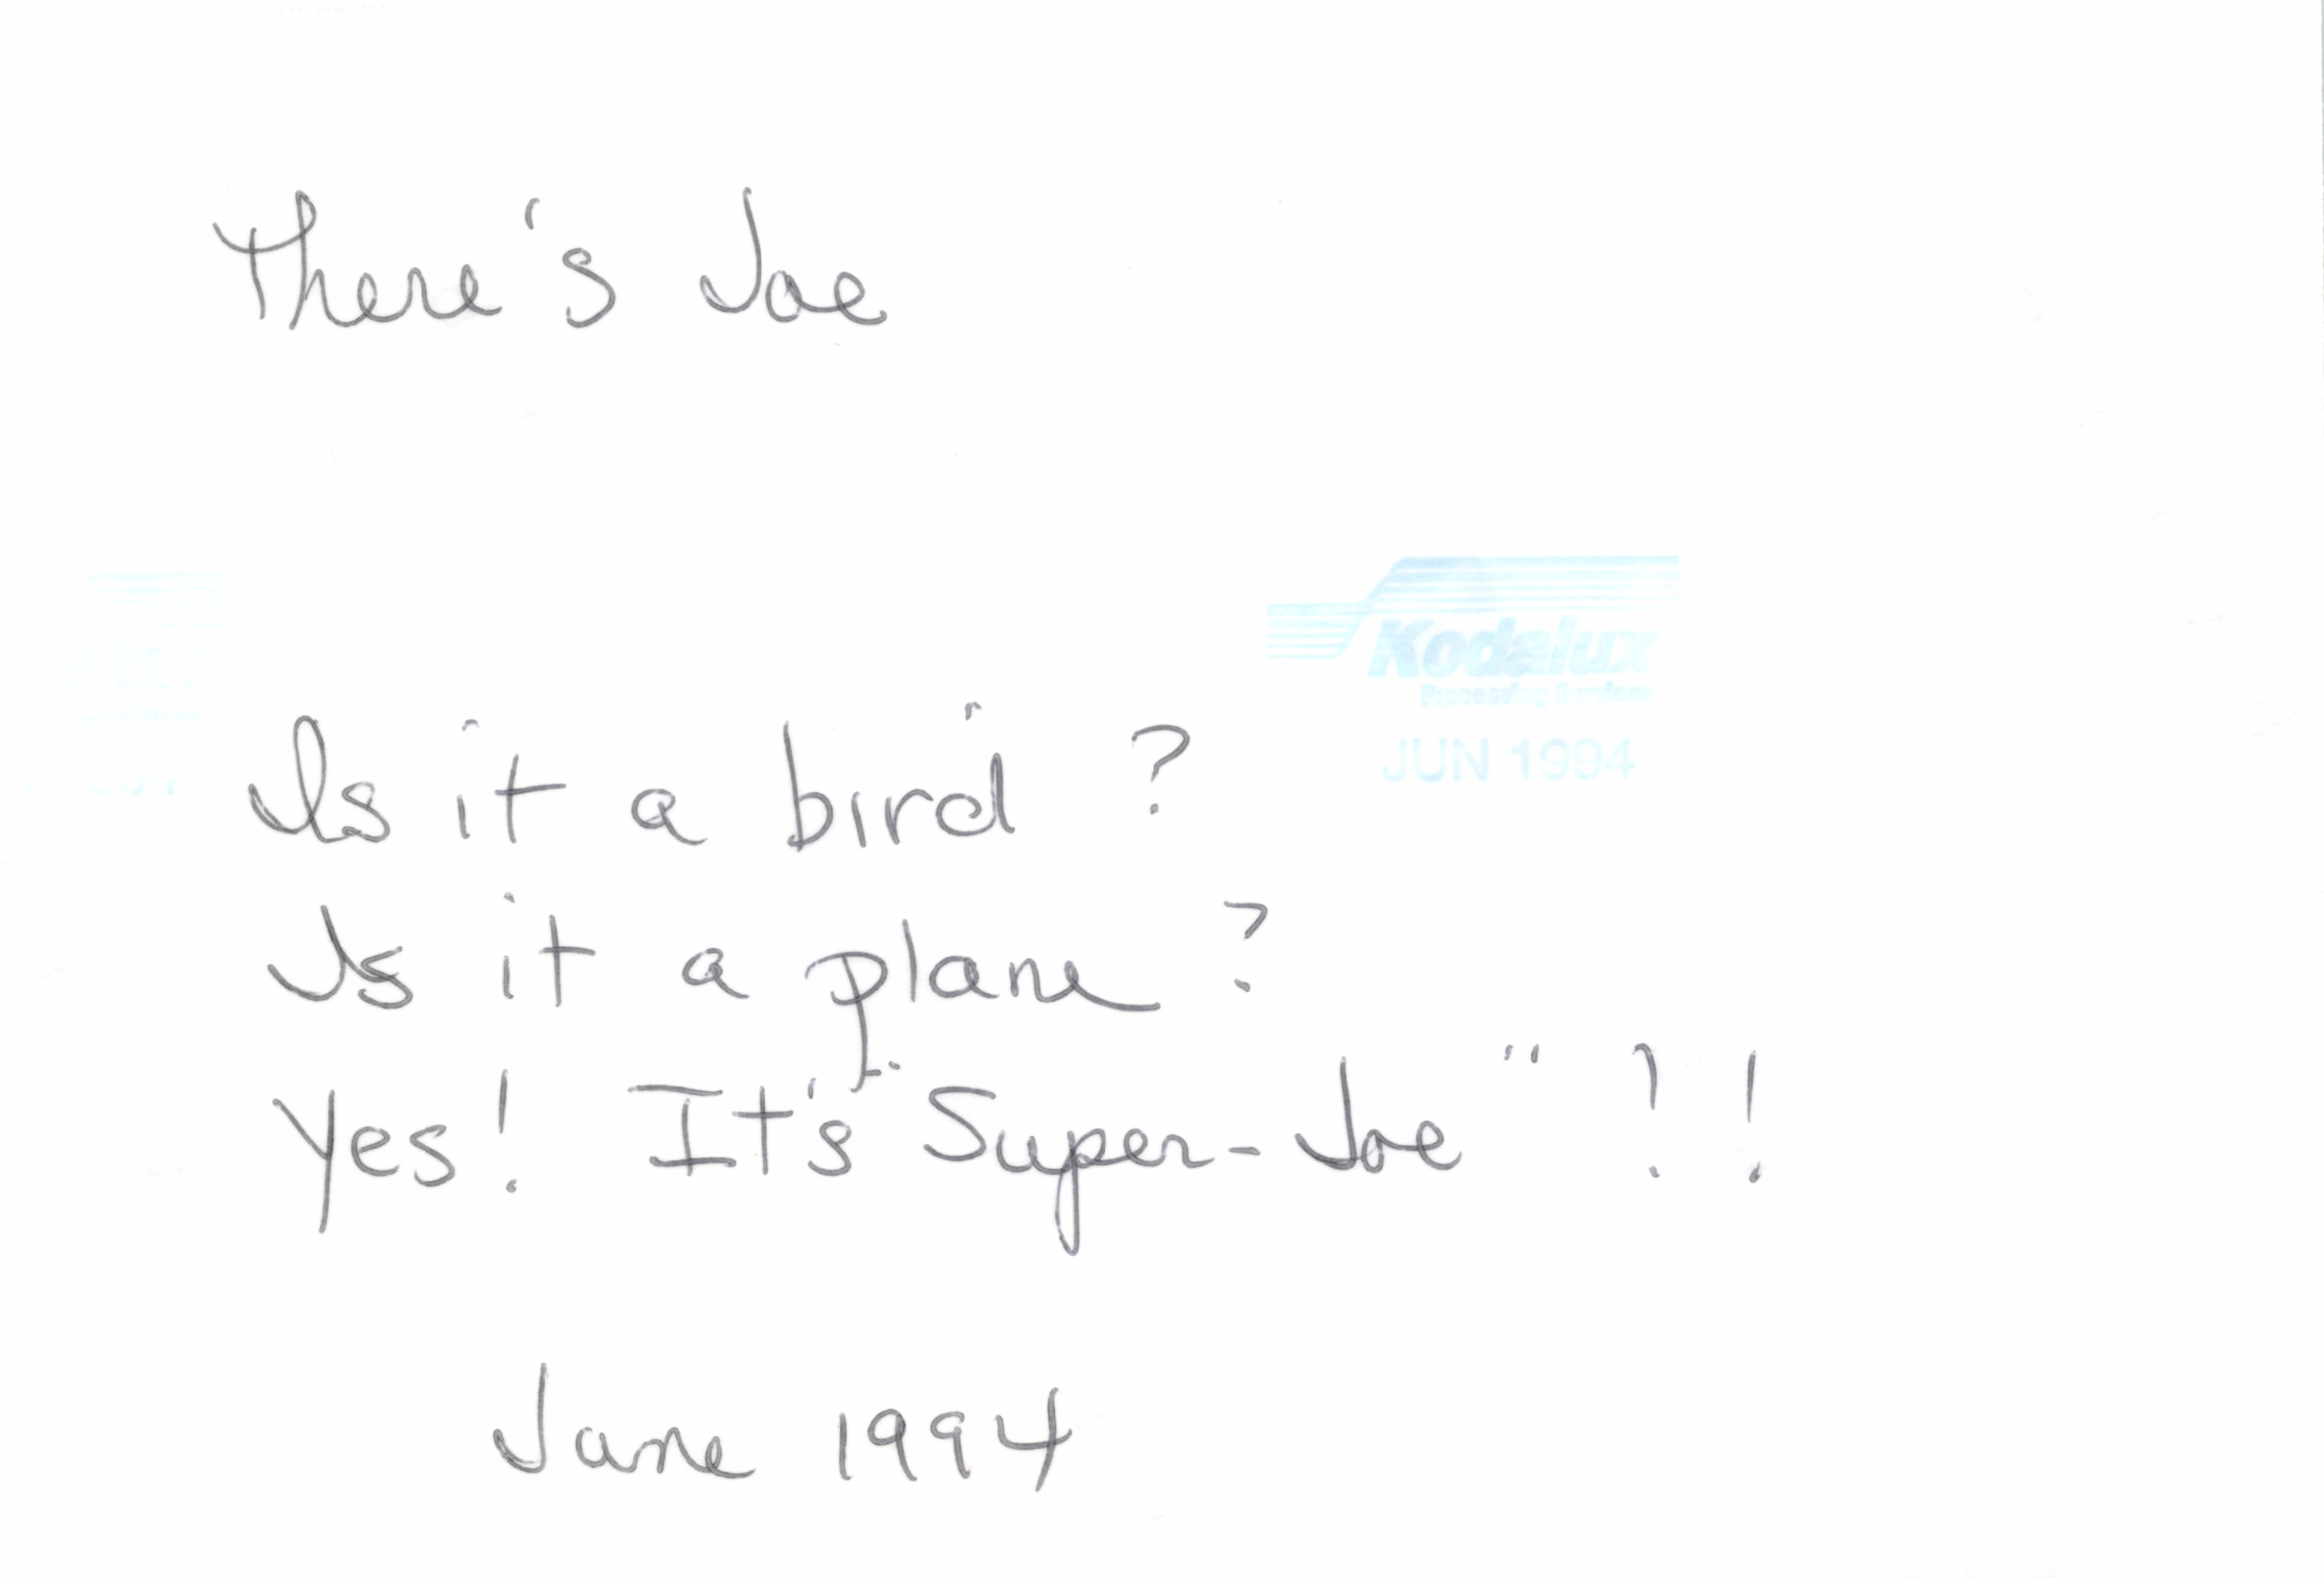 There's Joe
Kodalux
Processing Services
JUN 1994
Is it a bird ?
Is it a plane ?
Yes! It's "Super-Joe" !!
June 1994